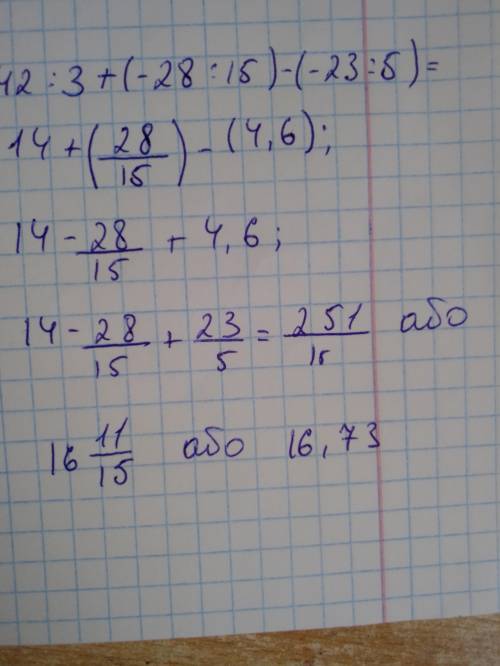 42 : 3 + (-28 : 15) - (-23 : 5) =
14 + (28/15) - (4,6);
14 - 28/15 + 4,6;
14 - 28/15 + 23/5 = 251/15 або
16 11/15 або 16,73